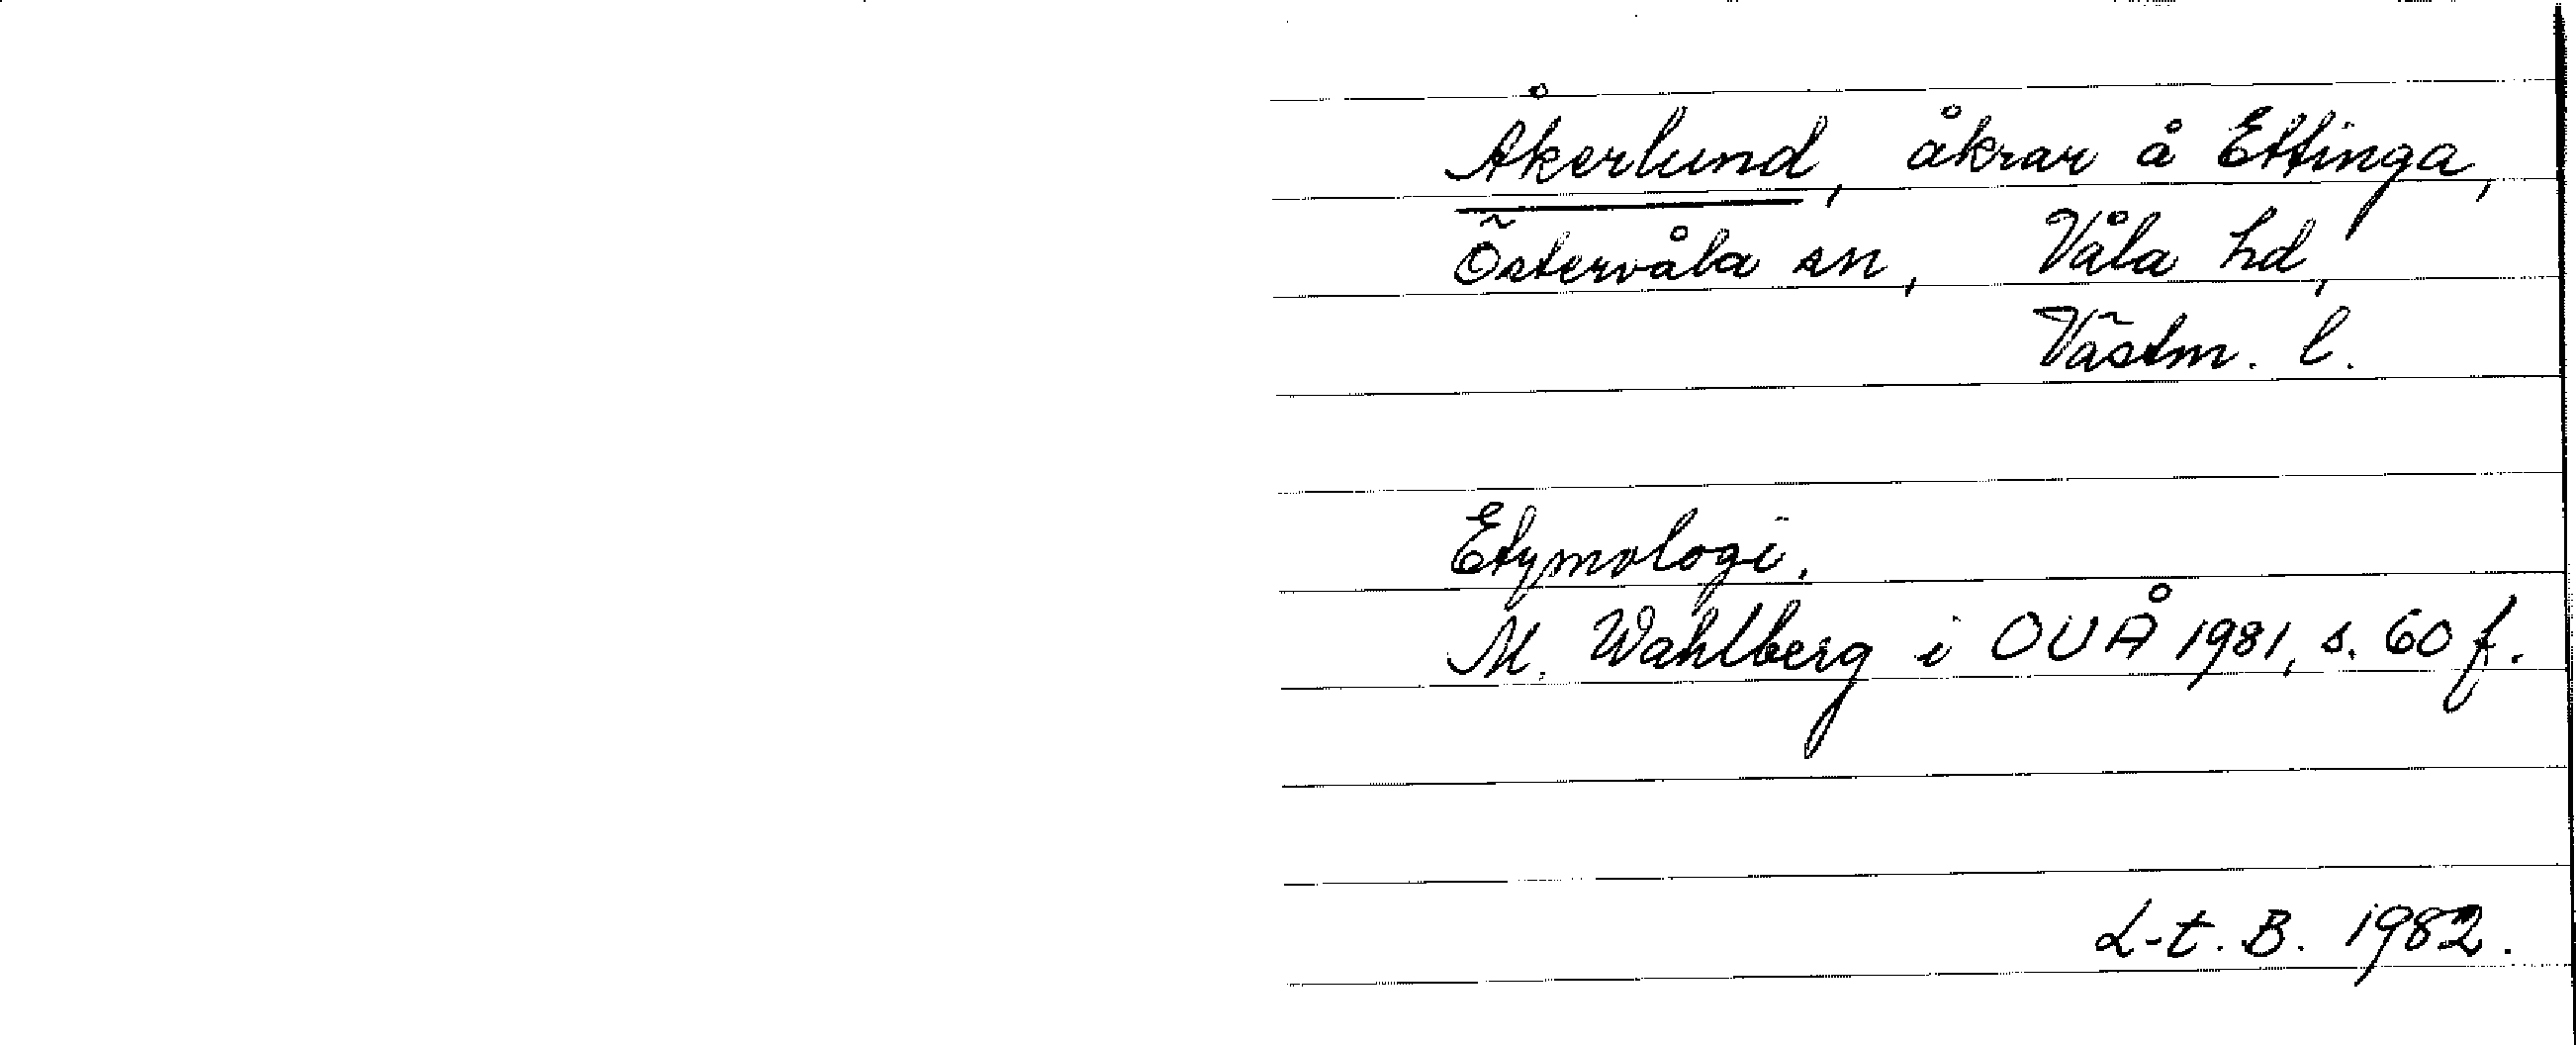 Åkerlund, åkrar å Ettinga,
Östervåla sn, Våla hd,
Västm. l.
Etymologi.
M. Wahlberg i OUÅ 1981, s. 60 f.
L-t. B. 1982.